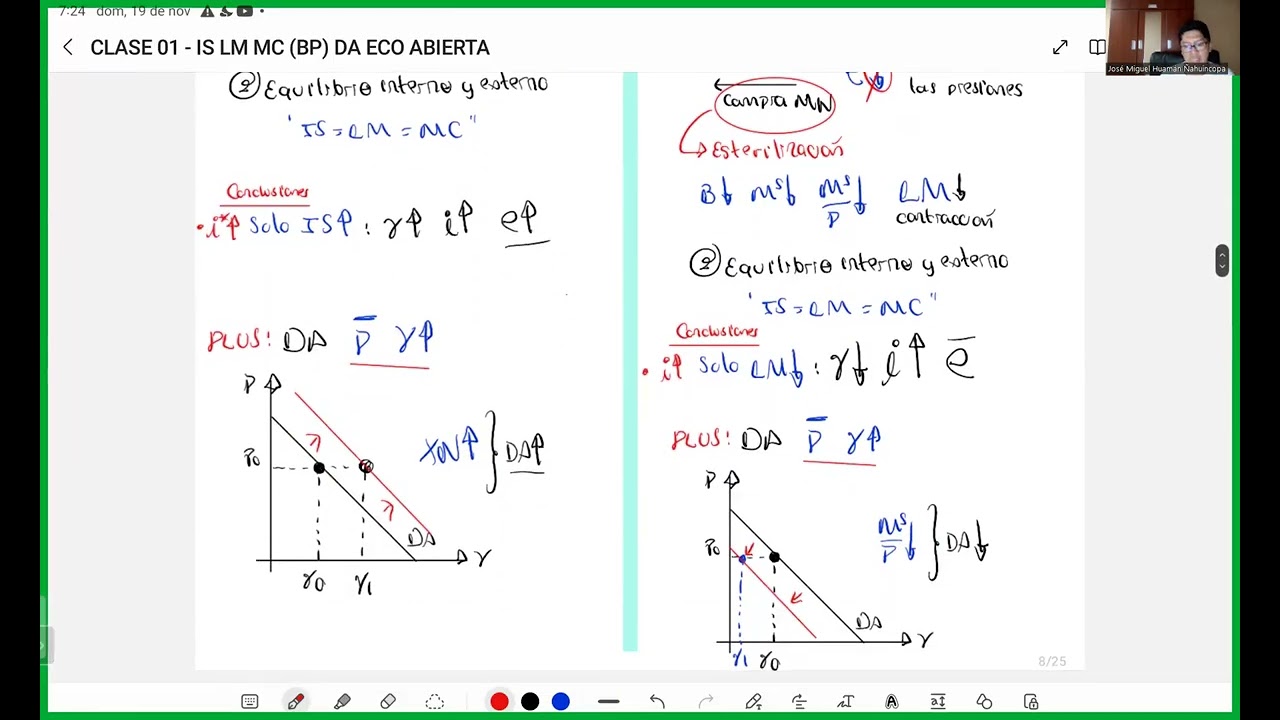 7:24 dom, 19 de nov
CLASE 01 - IS LM MC (BP) DA ECO ABIERTA
José Miguel Huamán Ñahuincopa
② Equilibrio interno y externo
"IS = LM = MC"
Conclusiones
• i*↑ Solo IS↑ : Y↑ i↑ e↑
PLUS! DA P̅ Y↑
P
P0
DA
Y0 Y1 Y
XN↑ } DA↑
las presiones
Compra MN
→ Esterilización
B↓ Mˢ↓ Mˢ/P↓ LM↓
contracción
② Equilibrio interno y externo
"IS = LM = MC"
Conclusiones
• i↑ Solo LM↓ : Y↓ i↑ e̅
PLUS! DA P̅ Y↑
P
P0
Mˢ/P↓ } DA↓
DA
Y1 Y0 Y
8/25